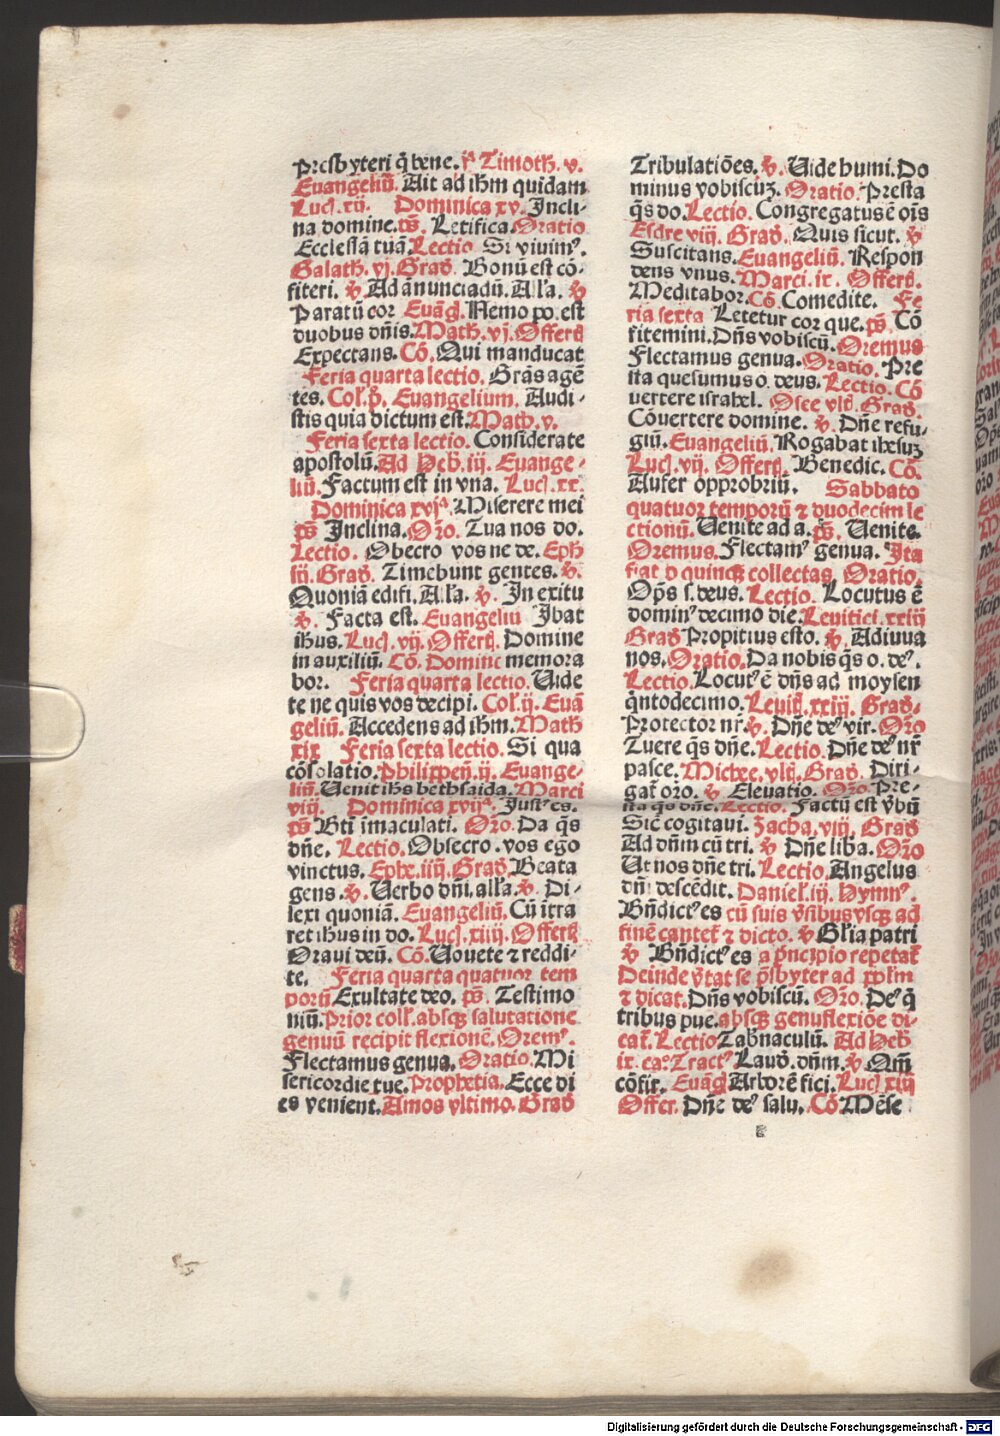 Presbyteri q̄ bene. j᷎ Timoth. v.
Euangeliū. Ait ad ihm quidam
Luc̄. xij. Dominica xv. Incli-
na domine. p̄s. Letifica. Oratio
Ecclesiā tuā. Lectio Si viuimꝰ.
Galath. vj. Grad̄. Bonū est cō-
fiteri. ℣ Ad ānunciadū. Alľa. ℣
Paratū cor Euāḡ. Nemo pō. est
duobus dn̄is. Math. vj. Offert̄
Expectans. Cō. Qui manducat
Feria quarta lectio. Grās agē
tes. Col. p̄. Euangelium. Audi-
stis quia dictum est. Math. v.
Feria sexta lectio. Considerate
apostolū. Ad Heb̄. iij. Euange-
liū. Factum est in vna. Luc̄. xx.
Dominica xvjᵃ. Miserere mei
p̄s Inclina. Or̄o. Tua nos do.
Lectio. Obecro vos ne de. Eph̄
iij. Grad̄. Timebunt gentes. ℣.
Quoniā edifi. Alľa. ℣. In exitu
℣. Facta est. Euangeliu Ibat
ihus. Luc̄. vij. Offert̄. Domine
in auxiliū. Cō. Domine memora
bor. Feria quarta lectio. Uide
te ne quis vos decipi. Col. ij. Euā
geliū. Accedens ad ihm. Math
xix Feria sexta lectio. Si qua
cōsolatio. Philippeñ. ij. Euange-
liū. Uenit ihs bethsaida. Marci
viij. Dominica xvijᵃ. Justꝰ es.
p̄s Bt̄i īmaculati. Or̄o. Da q̄s
dn̄e. Lectio. Obsecro. vos ego
vinctus. Ephe. iiij. Grad̄. Beata
gens. ℣. Uerbo dn̄i. alľa. ℣. Di-
lexi quoniā. Euangeliū. Cū ītra
ret ihus in do. Luc̄. xiiij. Offert̄
Oraui deū. Cō. Uouete ⁊ reddi-
te. Feria quarta quatuor tem
porū Exultate deo. p̄s. Testimo
niū. Prior coll. absqꝫ salutatione
genuū recipit flexionē. Oremꝰ.
Flectamus genua. Oratio. Mi
sericordie tue. Prophetia. Ecce di
es venient. Amos vltimo. Grad̄
Tribulatiōes. ℣. Uide humi. Do
minus vobiscūꝫ. Oratio. Presta
q̄s do. Lectio. Congregatus ē oīs
Esdre viij. Grad̄. Quis sicut. ℣
Suscitans. Euangeliū. Respon
dens vnus. Marci. ix. Offert̄.
Meditabor. Cō. Comedite. Fe
ria sexta Letetur cor que. p̄s. Cō
fitemini. Dn̄s vobiscū. Oremus
Flectamus genua. Oratio. Pre
sta quesumus o. deus. Lectio. Cō
uertere israhel. Osee vlt̄. Grad̄.
Cōuertere domine. ℣. Dn̄e refu-
giū. Euangeliū. Rogabat ihesuꝫ
Luc̄. vij. Offert̄. Benedic. Cō.
Aufer opprobriū. Sabbato
quatuor temporū ⁊ duodecim le
ctionū. Uenite ad a. p̄s. Uenite.
Oremus. Flectamꝰ genua. Ita
fiat p quinqꝫ collectas Oratio.
Op̄s s. deus. Lectio. Locutus ē
dominꝰ decimo die. Leuitici. xxiij
Grad̄ Propitius esto. ℣. Adiuua
nos. Oratio. Da nobis q̄s o. deꝰ.
Lectio. Locutꝰ ē dn̄s ad moysen
q̄ntodecimo. Leuit̄. xxiij. Grad̄.
Protector nr̄. ℣. Dn̄e deꝰ vir. Or̄o
Tuere q̄s dn̄e. Lectio. Dn̄e deꝰ nr̄
pasce. Michee. vlt̄. Grad̄. Diri-
gat̄ or̄o. ℣ Eleuatio. Or̄o. Pre-
sta q̄s dn̄e. Lectio. Factū est v̄bū
Sic̄ cogitaui. Zacha. viij. Grad̄
Ad dn̄m cū tri. ℣ Dn̄e liba. Or̄o
Ut nos dn̄e tri. Lectio. Angelus
dn̄i descēdit. Daniel. iij. Hymnꝰ.
Bn̄dictꝰ es cū suis v̄sibus vsqꝫ ad
finē cantet̄ ⁊ dicto. ℣ Gl̄ia patri
℣ Bn̄dictꝰ es a p̄ncipio repetat̄
Deinde v̄tat se p̄sbyter ad ppl̄m
⁊ dicat. Dn̄s vobiscū. Or̄o. Deꝰ q̄
tribus pue. absqꝫ genuflexiōe di-
cat̄. Lectio Tab̄naculū. Ad Heb̄
ix. ca. Tractꝰ Laud̄. dn̄m. ℣ Qm̄
cōfir. Euāḡ Arborē fici. Luc̄ xiij
Offer. Dn̄e deꝰ salu. Cō Mēse
Digitalisierung gefördert durch die Deutsche Forschungsgemeinschaft - DFG